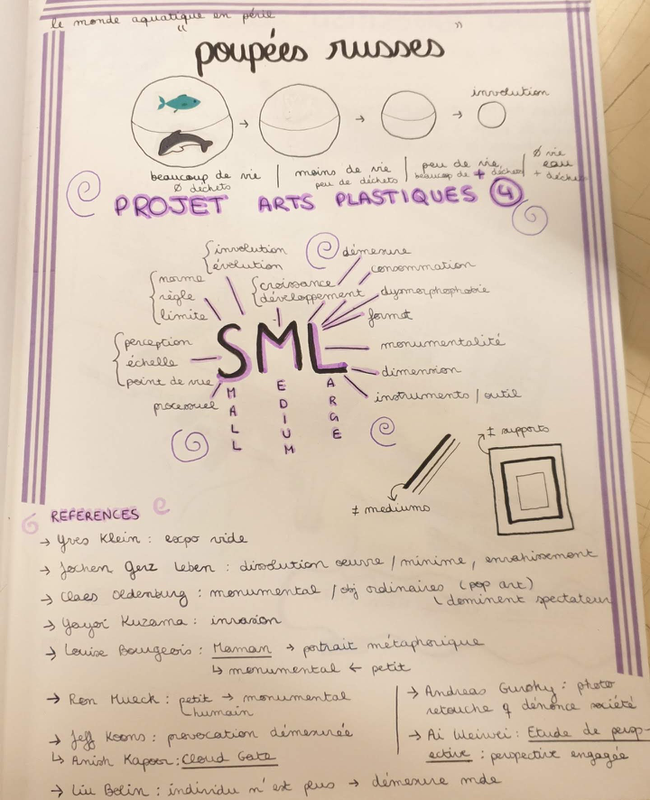 le monde aquatique en péril
" poupées russes "
involution
beaucoup de vie
Ø déchets
moins de vie
peu de déchets
peu de vie,
beaucoup de + déchets
Ø vie
eau
+ déchets
PROJET ARTS PLASTIQUES 4
involution
évolution
démesure
consommation
norme
règle
limite
croissance
développement
dysmorphophobie
format
perception
échelle
point de vue
SML
monumentalité
dimension
processuel
instruments / outil
SMALL
MEDIUM
LARGE
≠ supports
≠ mediums
REFERENCES
→ Yves Klein : expo vide
→ Jochen Gerz Leben : dissolution oeuvre / minime, envahissement
→ Claes Oldenburg : monumental / obj ordinaires (pop art)
dominent spectateur
→ Yayoi Kuzama : invasion
→ Louise Bourgeois : Maman → portrait métaphorique
↳ monumental ← petit
→ Ron Mueck : petit → monumental
humain
→ Jeff Koons : provocation démesurée
↳ Anish Kapoor : Cloud Gate
→ Liu Bolin : individu n'est plus → démesure mde
→ Andreas Gursky : photo
retouche q dénonce société
→ Ai Weiwei : Etude de persp-
ective : perspective engagée